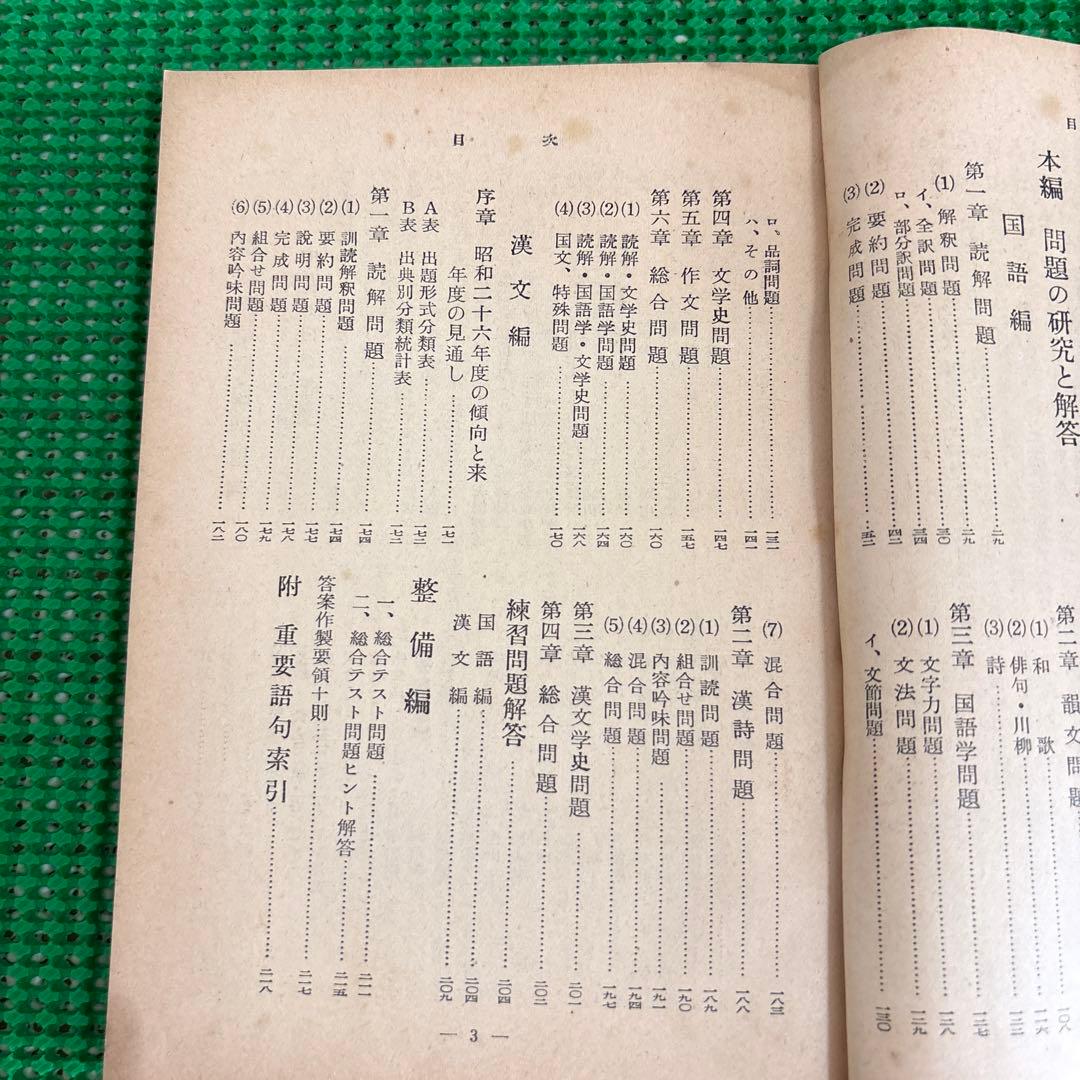 目
本編 問題の研究と解答
国語編
第一章 読解問題……二九
(1) 解釈問題……二九
イ、全訳問題……三〇
ロ、部分訳問題……三四
(2) 要約問題……四二
(3) 完成問題……五二
第二章 韻文問
(1) 和歌……一〇八
(2) 俳句・川柳……一一六
(3) 詩……一二二
第三章 国語学問題……一二七
(1) 文字力問題……一二八
(2) 文法問題……一二九
イ、文節問題……一三〇
目次
ロ。品詞問題……一三一
ハ、その他……一四一
第四章 文学史問題……一四七
第五章 作文問題……一五七
第六章 総合問題……一六〇
(1) 読解・文学史問題……一六〇
(2) 読解・国語学問題……一六四
(3) 読解・国語学・文学史問題……一六八
(4) 国文、特殊問題……一七〇
漢文編
序章 昭和二十六年度の傾向と来
年度の見通し……一七一
A表 出題形式分類表……一七二
B表 出典別分類統計表……一七二
第一章 読解問題……一七四
(1) 訓読解釈問題……一七四
(2) 要約問題……一七七
(3) 説明問題……一七八
(4) 完成問題……一七九
(5) 組合せ問題……一八〇
(6) 内容吟味問題……一八二
(7) 混合問題……一八三
第二章 漢詩問題……一八八
(1) 訓読問題……一八九
(2) 組合せ問題……一九〇
(3) 内容吟味問題……一九一
(4) 混合問題……一九四
(5) 総合問題……一九七
第三章 漢文学史問題……二〇一
第四章 総合問題……二〇二
練習問題解答……二〇四
国語編……二〇四
漢文編……二〇九
整備編
一、総合テスト問題……二一一
二、総合テスト問題ヒント解答……二一五
答案作製要領十則……二一七
附 重要語句索引……二一八
— 3 —